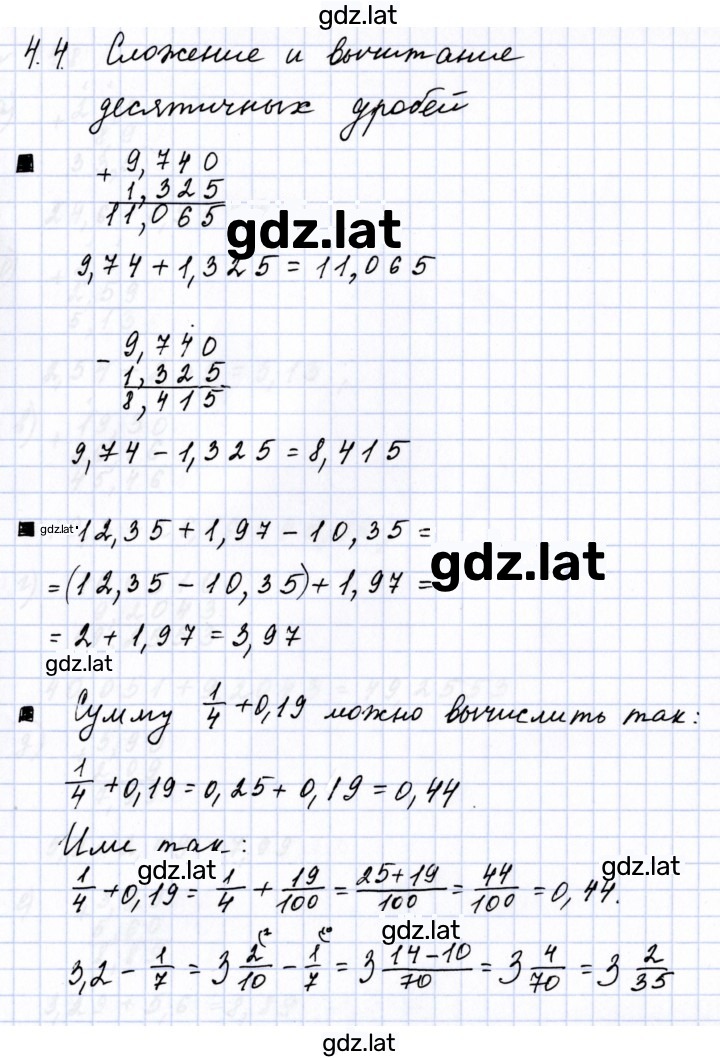 gdz.lat
4.4. Сложение и вычитание
десятичных дробей
+ 9,740
1,325
11,065
gdz.lat
9,74 + 1,325 = 11,065
- 9,740
1,325
8,415
9,74 - 1,325 = 8,415
gdz.lat
12,35 + 1,97 - 10,35 =
gdz.lat
= (12,35 - 10,35) + 1,97 =
= 2 + 1,97 = 3,97
gdz.lat
Сумму 1/4 + 0,19 можно вычислить так:
1/4 + 0,19 = 0,25 + 0,19 = 0,44
Или так:
gdz.lat
gdz.lat
1/4 + 0,19 = 1/4 + 19/100 = (25+19)/100 = 44/100 = 0,44.
gdz.lat
3,2 - 1/7 = 3 2/10 - 1/7 = 3 (14-10)/70 = 3 4/70 = 3 2/35
gdz.lat